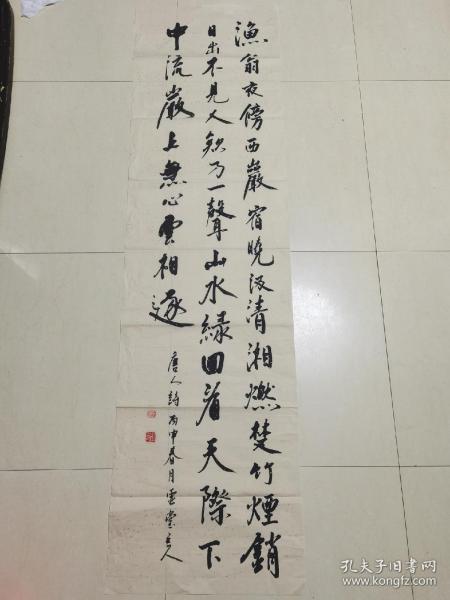 漁翁夜傍西巖宿曉汲清湘燃楚竹煙銷
日出不見人欸乃一聲山水綠回看天際下
中流巖上無心雲相逐
唐人詩丙申春月雲堂主人
孔夫子旧书网